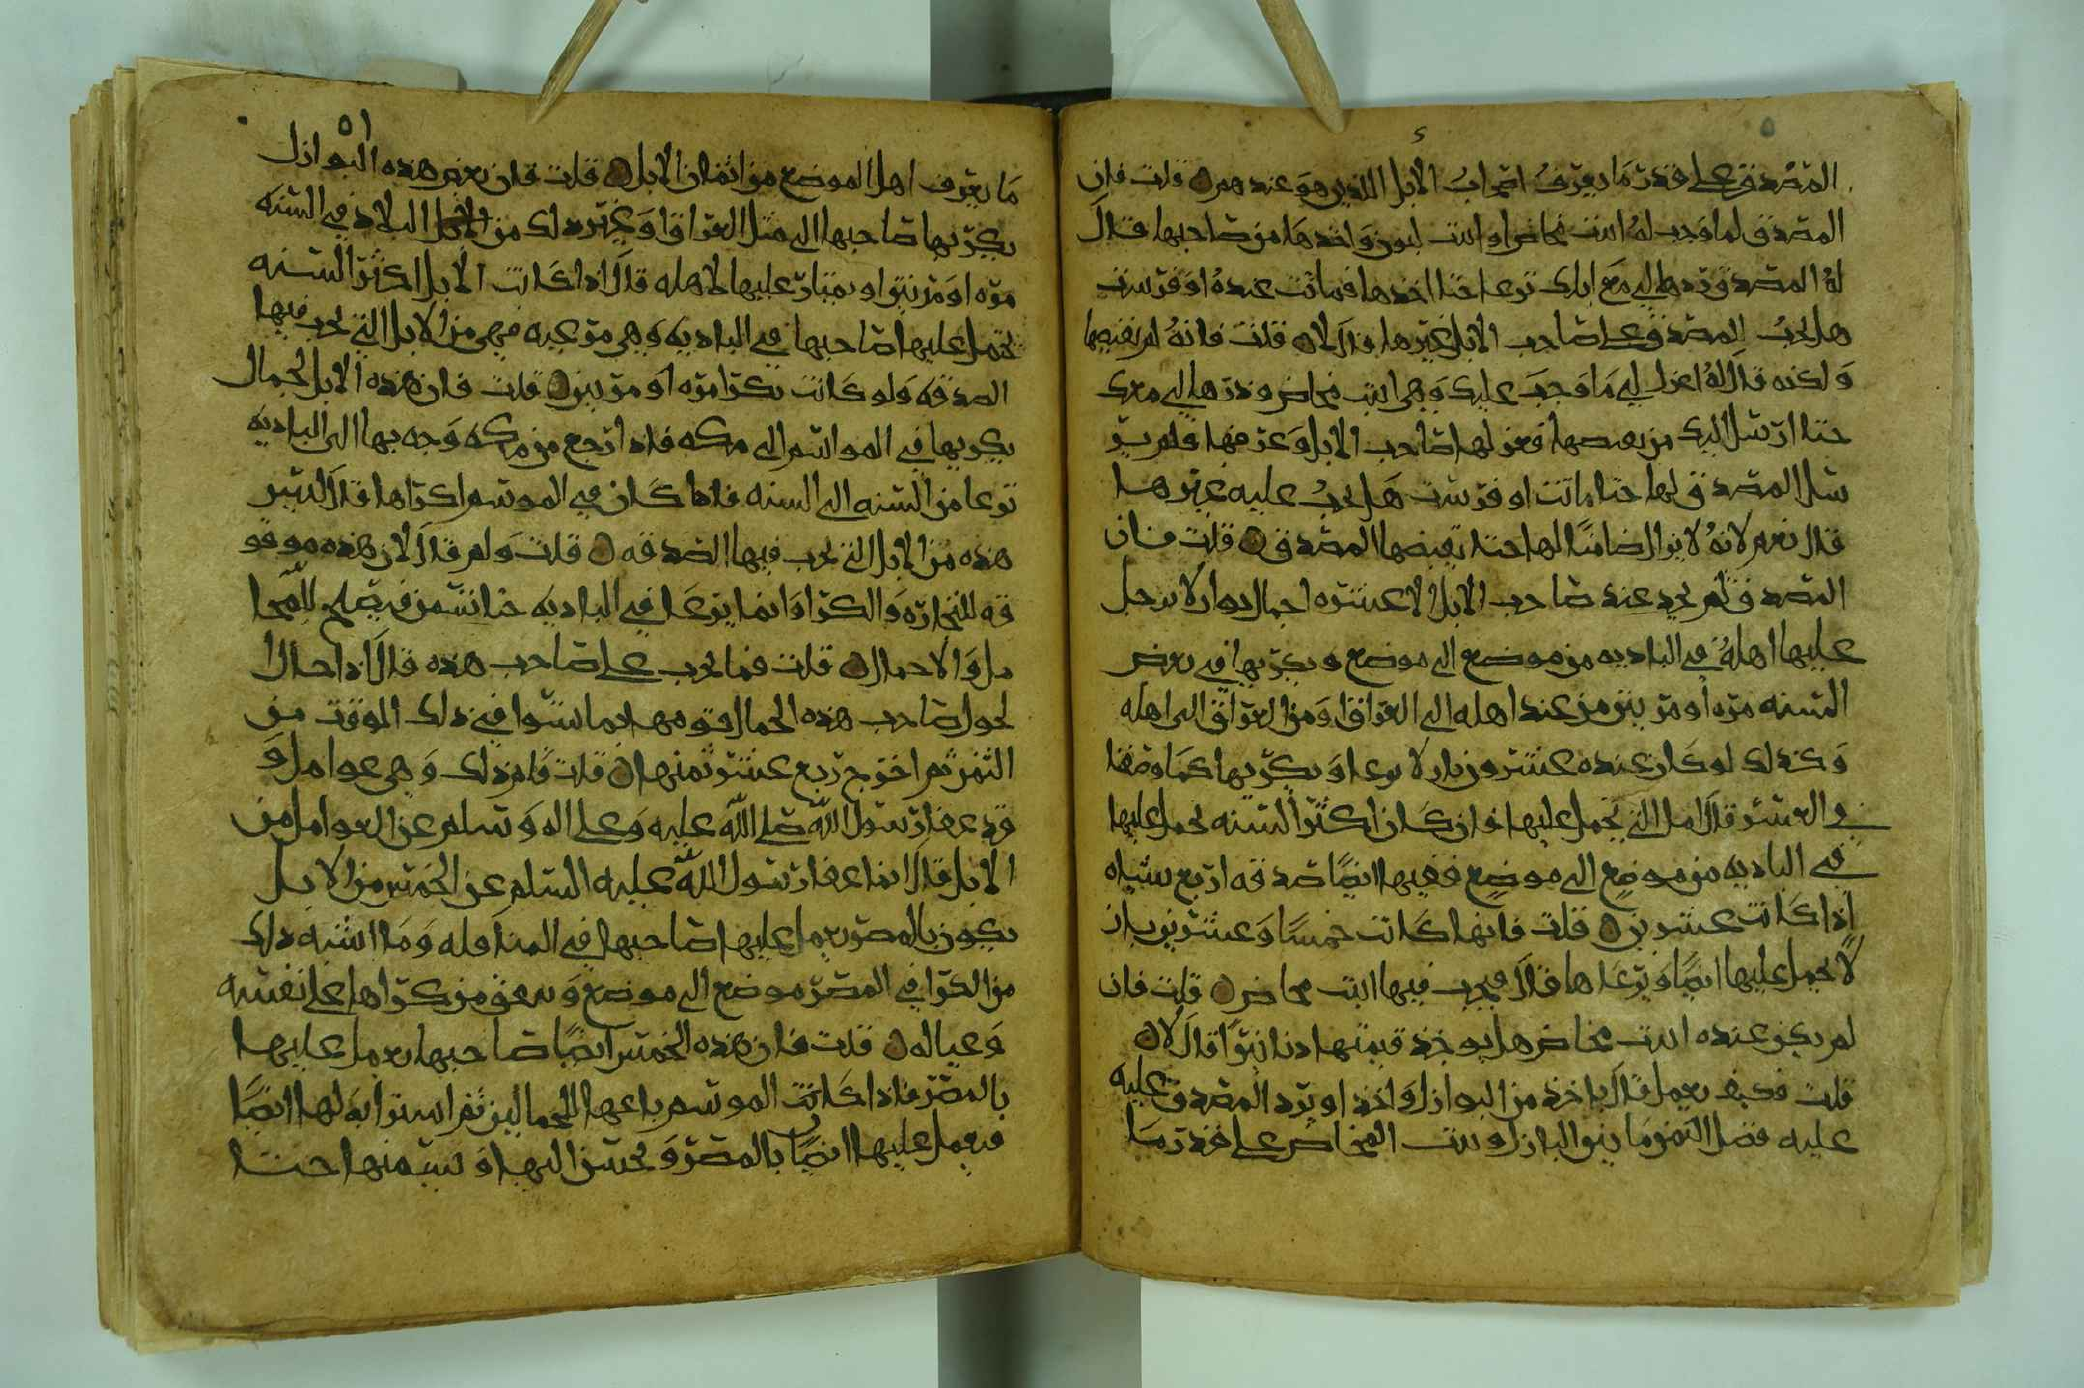 المصدق على قدر ما يعرف اصحاب الابل الذين هو عندهم ۝ قلت فان
المصدق لما وجب له ابنت مخاض او ابنت لبون واخذها من صاحبها قال
له المصدق تردها لي مع ابلك ترعا حتا اخذها فماتت عنده او فرست
هل يجب للمصدق على صاحب الابل غيرها قال لا ۝ قلت فانه لم يقبضها
ولكنه قال له اعزل لي ما وجب عليك وهي ابنت مخاض وذرها لي معك
حتا ارسل اليك من يقبضها فعزلها صاحب الابل وعرفها فلم ير
سل المصدق لها حتا ماتت او فرست هل يجب عليه غيرها
قال نعم لانه لا يزال ضامنا لها حتا يقبضها المصدق ۝ قلت فان
المصدق لم يجد عند صاحب الابل الا عشره اجمال بوازل يرحل
عليها اهله في الباديه من موضع الى موضع ويكريها في بعض
السنه مره او مرتين من عند اهله الى العراق ومن العراق الى اهله
وكذلك لو كان عنده عشرون بازلا يرعا او يكريها كما وصفنا
في العشر قال التي يحمل عليها ان كان اكثر السنه يحمل عليها
في الباديه من موضع الى موضع ففيها ايضا صدقه اربع شياه
اذا كانت عشرين ۝ قلت فانها كانت خمسا وعشرين بازل
لا يحمل عليها ايضا ويرعاها قال يجب فيها ابنت مخاض ۝ قلت فان
لم يكن عنده ابنت مخاض هل يوخذ قيمتها دنانيرا قال لا ۝
قلت فكيف يعمل قال ياخذ من البوازل واحد او يرد المصدق عليه
عليه فضل الثمن ما بين البازل وبنت المخاض على قدر ما
٥١
ما يعرف اهل الموضع من اثمان الابل ۝ قلت فان بعض هذه البوازل
يكريها صاحبها الى مثل العراق او غير ذلك من البلاد في السنه
مره او مرتين او يمتار عليها لاهله قال اذا كانت الابل اكثر السنه
يحمل عليها صاحبها في الباديه وهي مرعيه فهي من الابل التي يجب فيها
الصدقه ولو كانت تكرا مره او مرتين ۝ قلت فان هذه الابل لجمال
يكريها في المواسم الى مكه فاذا رجع من مكه وجه بها الى الباديه
ترعا من السنه الى السنه فاذا كان في الموسم اكراها قال ليس
هذه من الابل التي يجب فيها الصدقه ۝ قلت ولم قال لان هذه موقو
فه للتجاره والكرا وانما يرعا في الباديه حتا تسمن فيصلح للمحا
مل والاحمال ۝ قلت فما يجب على صاحب هذه قال اذا حال
لحول صاحب هذه الجمال قومها بما تسوا في ذلك الوقت من
الثمن ثم اخرج ربع عشر ثمنها ۝ قلت ولم ذلك وهي عوامل و
قد عفا رسول الله صلى الله عليه وعلى اله وسلم عن العوامل من
الابل قال انما عفا رسول الله عليه السلم عن الخمس من الابل
يكون بالمصر يعمل عليها صاحبها في المناقله وما اشبه ذلك
من الكرا في المصر موضع الى موضع وينفق من كراها على نفسه
وعياله ۝ قلت فان هذه الخمس ايضا صاحبها يعمل عليها
بالمصر فاذا كانت الموسم باعها للجمالين ثم استرا به لها ايضا
فيعمل عليها ايضا بالمصر ويحسن اليها ويسمنها حتا